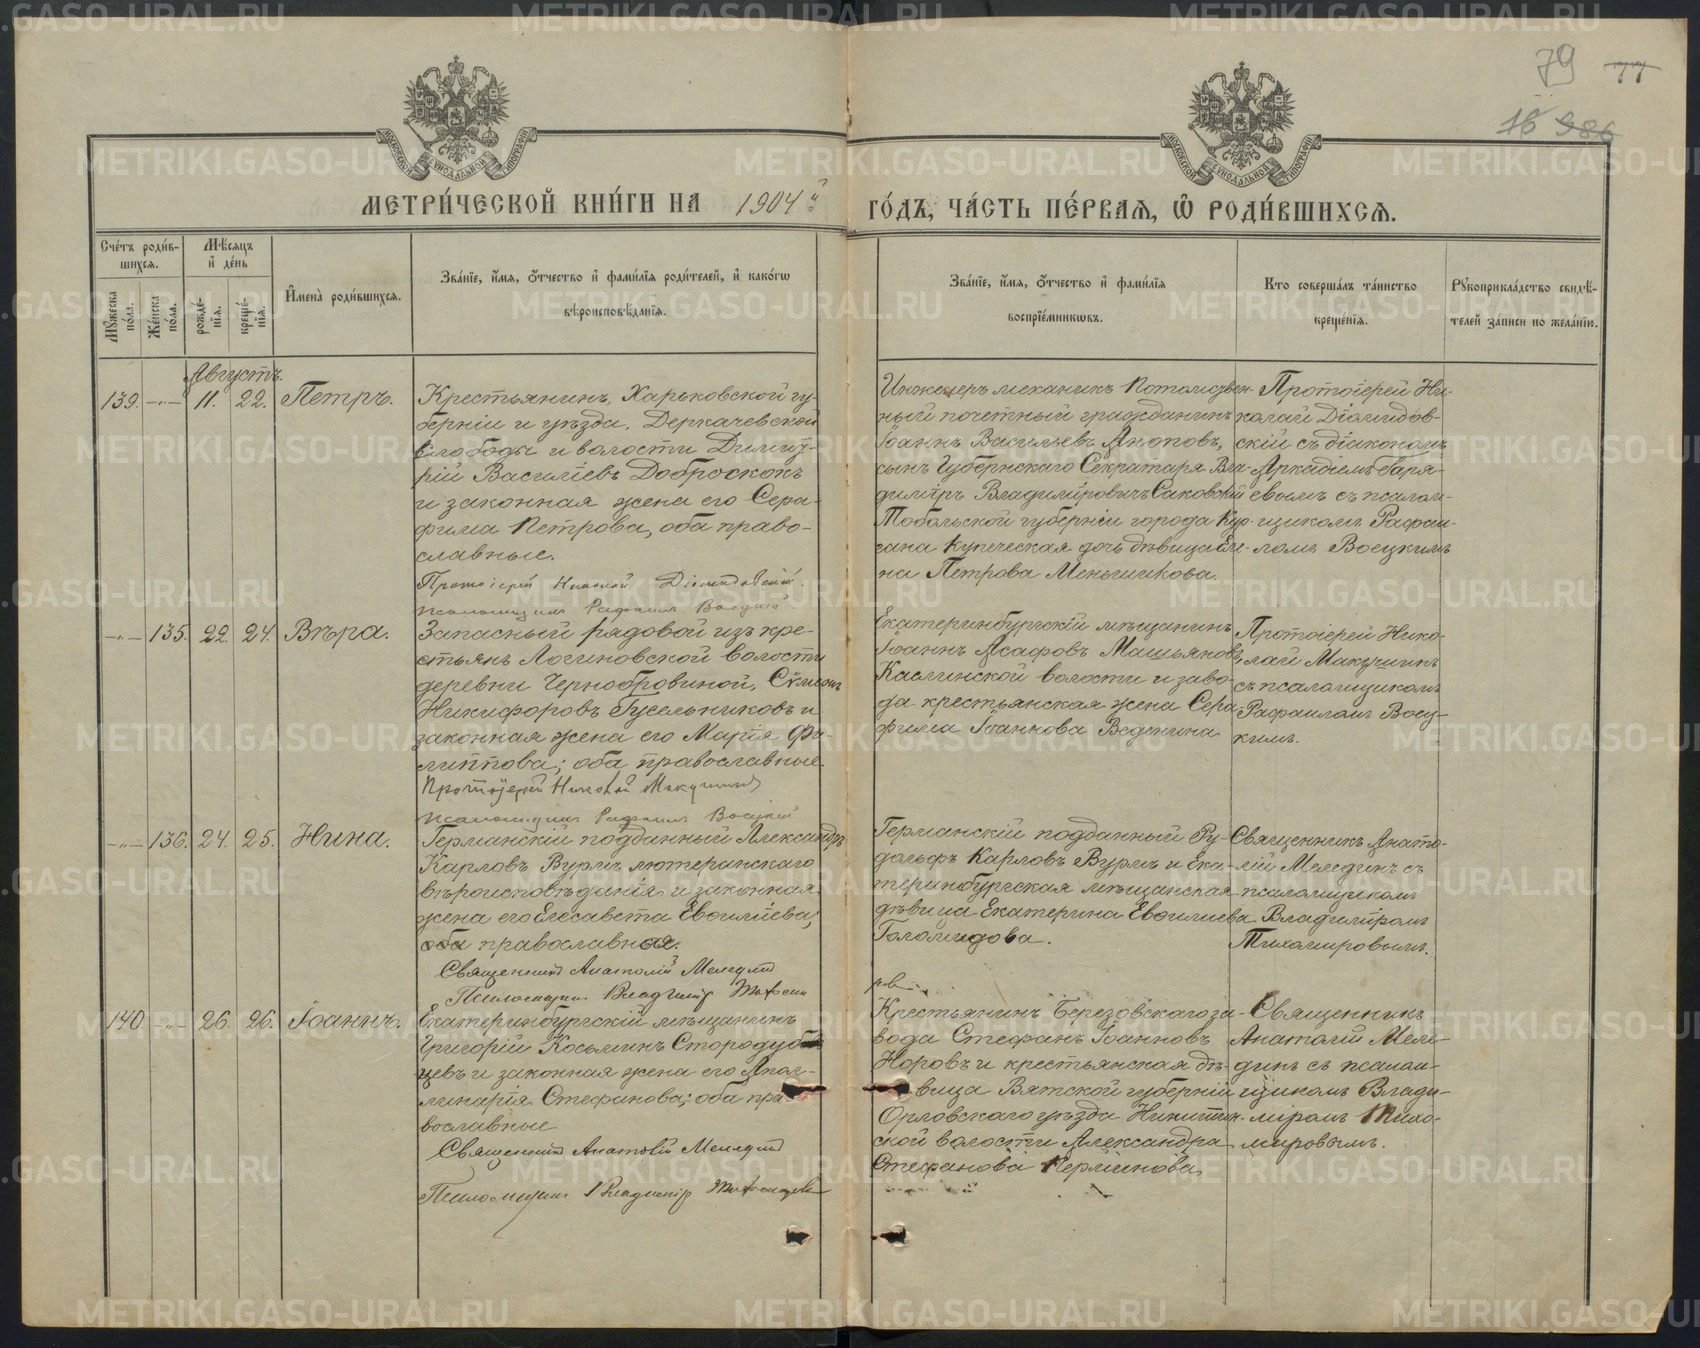 METRIKI.GASO-URAL.RU
79 77
16 986
МОСКОВСКОЙ СѴНОДАЛЬНОЙ ТИПОГРАФІИ
МОСКОВСКОЙ СѴНОДАЛЬНОЙ ТИПОГРАФІИ
МЕТРИ́ЧЕСКОЙ КНИ́ГИ НА 1904й
ГО́ДЪ, ЧА́СТЬ ПЕ́РВАЯ, Ѽ РОДИ́ВШИХСЯ.
Сче́тъ роди́в-
шихся.
Мѣ́сяцъ
и҆ де́нь
Мꙋ́жеска
по́ла.
Же́нска
по́ла.
рожде́-
нїя.
креще́-
нїя.
И҆мена̀ роди́вшихся.
Зва́нїе, и҆́мя, ѻ҆́тчество и҆ фами́лїя роди́телей, и҆ како́гѡ
вѣроисповѣ́данїя.
Зва́нїе, и҆́мя, ѻ҆́тчество и҆ фами́лїя
воспрїе́мникѡвъ.
Кто соверша́лъ та́инство
креще́нїя.
Рꙋкоприкла́дство свидѣ́-
телей за́писи по жела́нїю.
Августъ.
139. —„— 11. 22. Петръ.
Крестьянинъ, Харьковской гу-
берніи и уѣзда, Деркачевской
слободы и волости Димит-
рій Василіевъ Доброскокъ
и законная жена его Сера-
фима Петрова, оба право-
славные.
Протоіерей Николай Діомидовскій.
Псаломщикъ Рафаилъ Воецкій.
Инженеръ механикъ Потомствен-
ный почетный гражданинъ
Іоаннъ Васильевъ Аноповъ,
сынъ Губернскаго Секретаря Вла-
димиръ Владиміровичъ Саковскій
Тобольской губерніи города Кур-
гана купеческая дочь дѣвица Еле-
на Петрова Меньшикова.
Протоіерей Ни-
колай Діомидов-
скій съ діакономъ
Аркадіемъ Гаря-
евымъ съ псалом-
щикомъ Рафаи-
ломъ Воецкимъ
—„— 135. 22. 24. Вѣра.
Запасный рядовой изъ кре-
стьянъ Логиновской волости
деревни Чернобровиной, Сѵмеонъ
Никифоровъ Гусельниковъ и
законная жена его Марія Фи-
липпова; оба православные.
Протоіерей Николай Макушинъ
псаломщикъ Рафаилъ Воецкій
Екатеринбургскій мѣщанинъ
Іоаннъ Асафовъ Машьяновъ,
Каслинской волости и заво-
да крестьянская жена Сера-
фима Іоаннова Веденина
Протоіерей Нико-
лай Макушинъ
съ псаломщикомъ
Рафаиломъ Воец-
кимъ.
—„— 136. 24. 25. Нина.
Германскій подданный Александръ
Карловъ Вурмъ лютеранскаго
вѣроисповѣданія и законная
жена его Елесавета Евсиліева,
оба православная.
Священникъ Анатолій Меледин
Псаломщикъ Владиміръ
Германскій подданный Ру-
дольфъ Карловъ Вурмъ и Ека-
теринбургская мѣщанская
дѣвица Екатерина
Голомидова.
Священникъ Анато-
лій Мелединъ съ
псаломщикомъ
Владиміромъ
Тихомировымъ.
140. —„— 26. 26. Іоаннъ.
Екатеринбургскій мѣщанинъ
Григорій Косьминъ Стародуб-
цевъ и законная жена его Апол-
линарія Стефанова; оба пра-
вославные
Священникъ Анатолій Меледин
Псаломщикъ Владиміръ
Крестьянинъ Березовскаго за-
вода Стефанъ Іоанновъ
Норовъ и крестьянская дѣ-
вица Вятской губерніи
Орловскаго уѣзда
ской волости Александра
Стефанова Пермінова,
Священникъ
Анатолій Меле-
динъ съ псалом-
щикомъ Влади-
міромъ Тихо-
мировымъ.